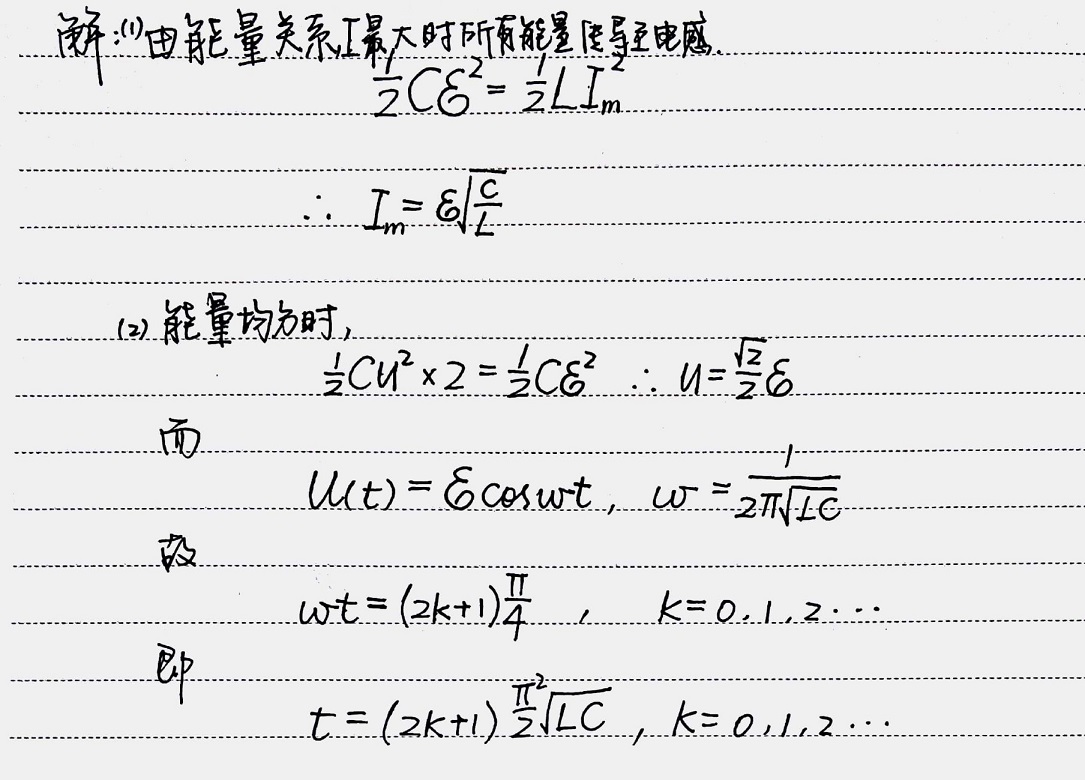 解:(1)由能量关系,I最大时所有能量传导至电感.
½Cℰ² = ½LIₘ²
∴ Iₘ = ℰ√(C/L)
(2) 能量均分时,
½CU² × 2 = ½Cℰ² ∴ U = (√2/2)ℰ
而
U(t) = ℰcosωt, ω = 1/(2π√(LC))
故
ωt = (2k+1)π/4 , k = 0,1,2⋯
即
t = (2k+1)(π²/2)√(LC) , k = 0,1,2⋯